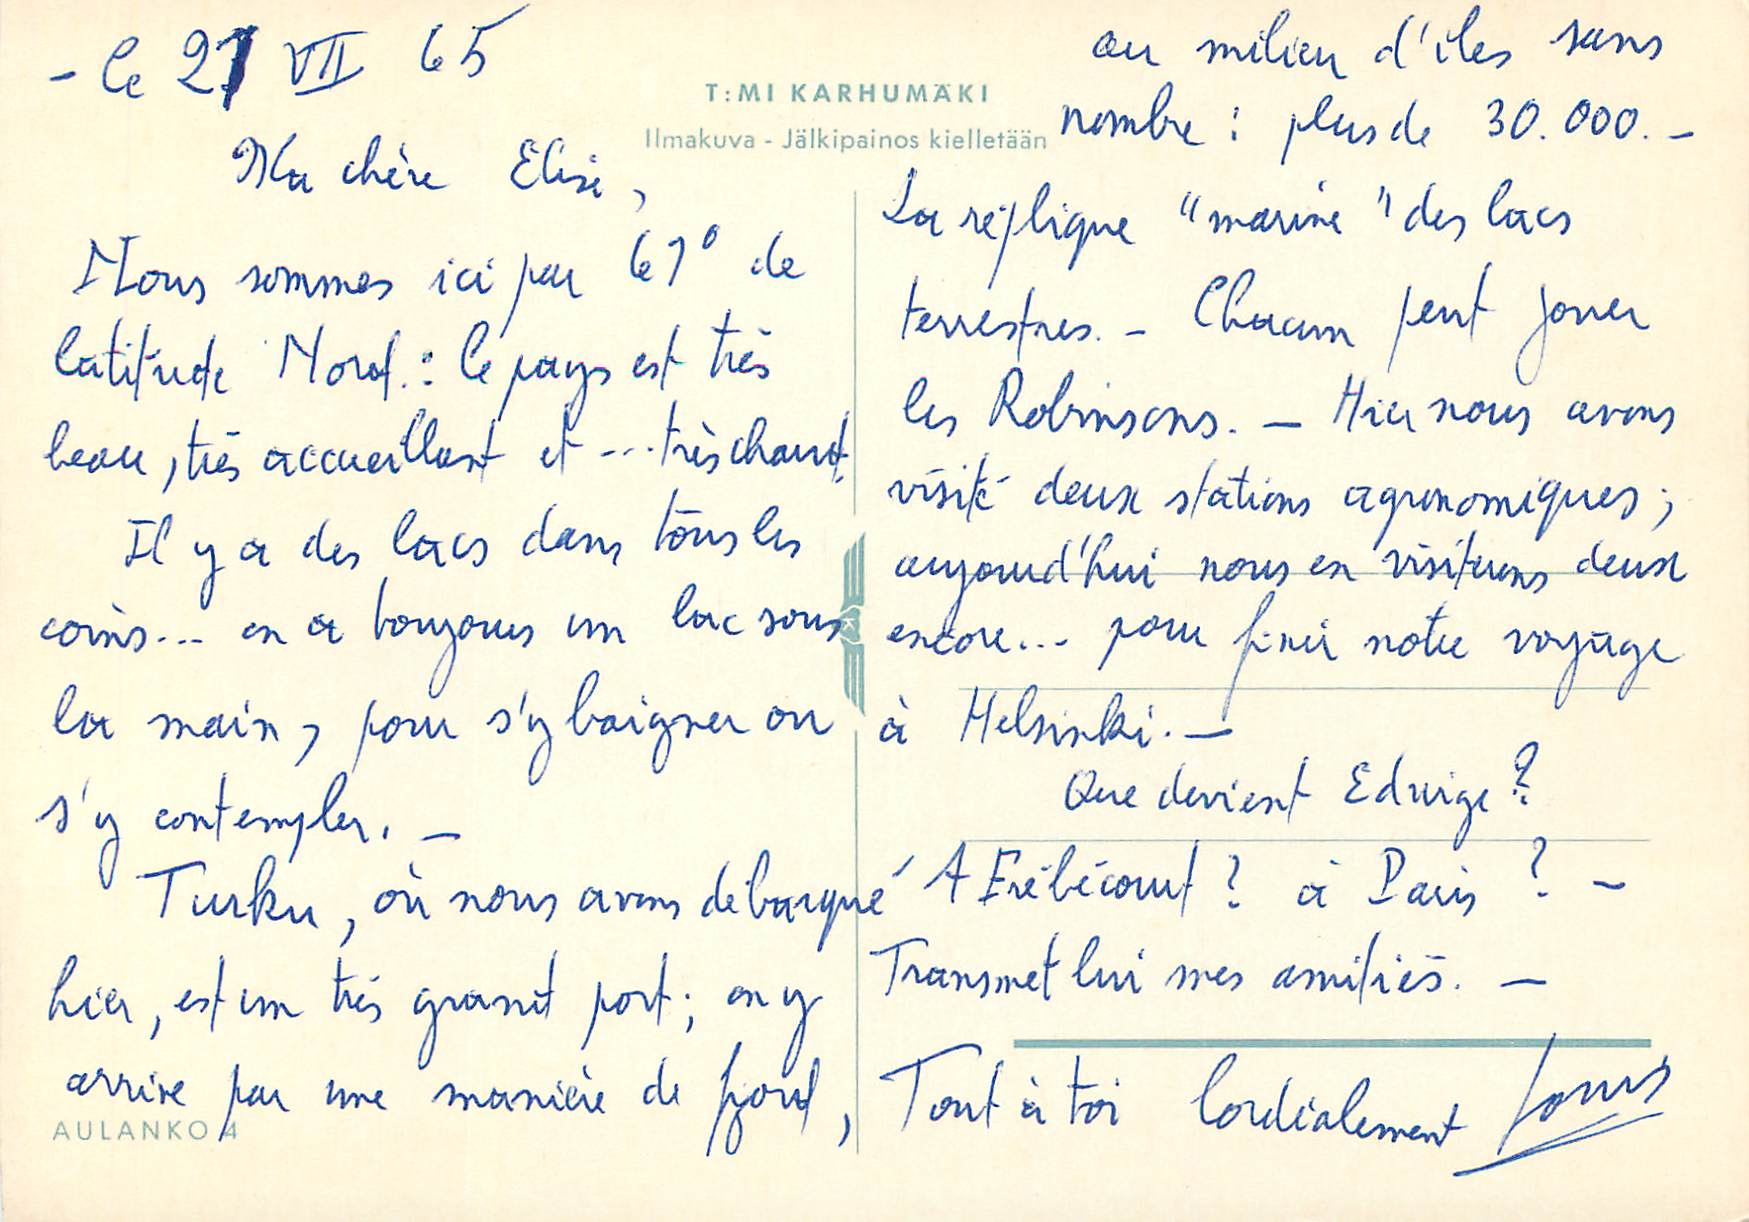 - Le 21 VII 65
T:MI KARHUMÄKI
Ilmakuva - Jälkipainos kielletään
Ma chère Elise,
Nous sommes ici par 61° de
latitude Nord. : le pays est très
beau, très accueillant et ... très chaud.
Il y a des lacs dans tous les
coins... on a toujours un lac sous
la main, pour s'y baigner ou
s'y contempler. -
Turku, où nous avons débarqué
hier, est un très grand port ; on y
arrive par une manière de fjord,
AULANKO 4
au milieu d'îles sans
nombre : plus de 30.000. -
La réplique "marine" des lacs
terrestres. - Chacun peut jouer
les Robinsons. - Hier nous avons
visité deux stations agronomiques ;
aujourd'hui nous en visiterons deux
encore... pour finir notre voyage
à Helsinki. -
Que devient Edwige ?
A Frébécourt ? à Paris ? -
Transmet lui mes amitiés. -
Tout à toi Cordialement Louis